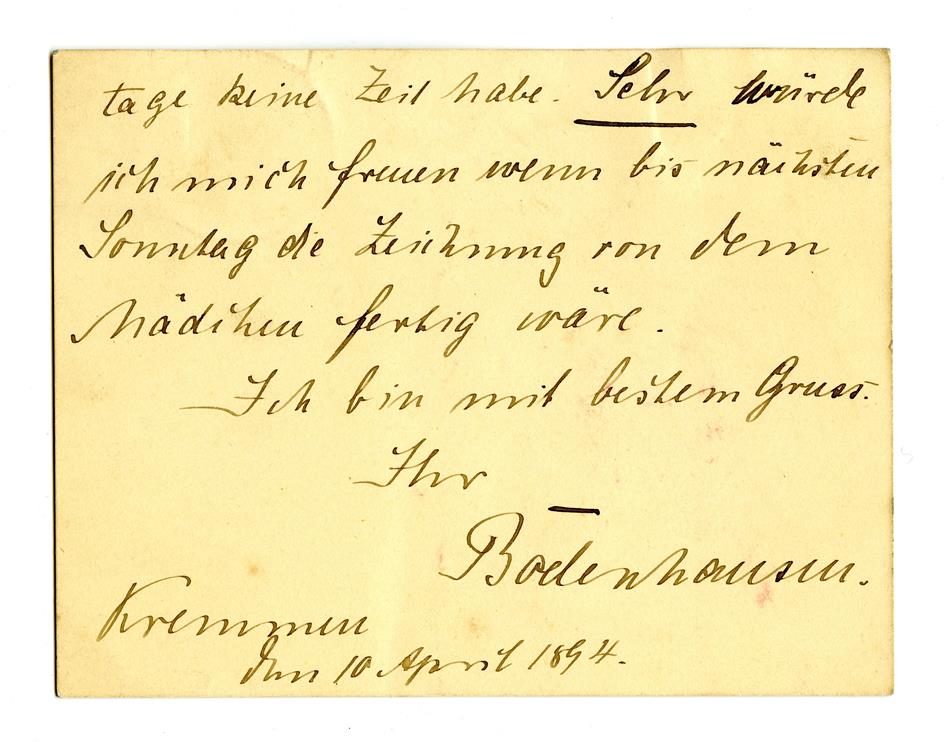 tage keine Zeit habe. Sehr würde
ich mich freuen wenn bis nächsten
Sonntag die Zeichnung von dem
Mädchen fertig wäre.
Ich bin mit bestem Gruss.
Ihr
Bodenhausen.
Kremmen
den 10 April 1894.